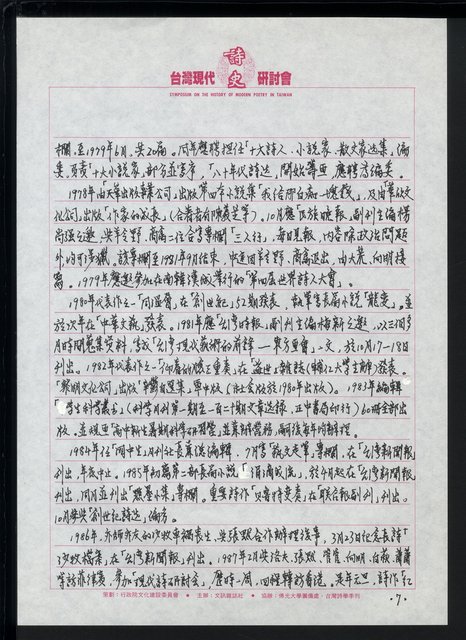 詩史
台灣現代 研討會
SYMPOSIUM ON THE HISTORY OF MODERN POETRY IN TAIWAN
欄，至1979年6月，共20篇。同年應聘擔任「十大詩人、小說家、散文家選集」編
委，負責「十大小說家」部分並寫序，「八十年代詩選」開始籌畫，應聘為編委。
1978年由天華出版事業公司出版第四本小說集「我信那白痴一邊錢」，及由華欣文
化公司出版「作家的成長」（合著者有陳處芝等）。10月應「民族晚報」副刊主編楊
尚強之邀，與羊令野、商禽二位合寫專欄「三人行」，每日見報，內容除政治問題
外，均可，該專欄至1981年9月結束，中途因羊令野、商禽退出，由大荒、向明接
寫。1979年應邀參加在南韓漢城舉行的「第四屆世界詩人大會」。
1980年代表作之一「周溫骨」在「創世紀」52期發表，執筆寫長篇小說「龍變」，並
於次年在「中華文藝」發表。1981年應「台灣時報」副刊主編梅新之邀，以三個多
月時間蒐集資料，寫成「台灣現代藝術的前鋒—東方畫會」一文，於10月17—18日
刊出。1982年代表作之一「仰看的臉之重奏」在「益世」雜誌（輔仁大學主辦）發表。
「黎明文化公司」出版「自選集」軍中版（社會版於1980年出版）。1983年編輯
「學生科學叢書」（科學月刊第一期至一百二十期文章選輯，正中書局印行）60冊全部出
版，並規畫「高中新生暑期科學研習營」，並兼辦營務，嗣後每年均辦理。
1984年任「國中生」月刊社長兼總編輯，7月寫「龍文走筆」專欄，在「台灣新聞報」
刊出，年底中止。1985年初為第二部長篇小說「 」，於4月起在「台灣新聞報」
刊出，同月並刊出「 」專欄。重要詩作「只有時變奏」在「聯合報副刊」刊出。
10月參與「創世紀詩選」編務。
1986年，參加與友的沙牧車禍喪生，與張默合作辦理後事，3月23日記念長詩「
沙牧檔案」在「台灣新聞報」刊出。1987年2月與洛夫、張默、管管、向明、白萩、蕭蕭
等訪菲律賓，參加「現代詩研討會」，歷時一周，回程轉訪香港。是年元旦，詩作「紅
策劃：行政院文化建設委員會 ● 主辦：文訊雜誌社 ● 協辦：佛光大學圖備處、台灣詩學季刊
·7·